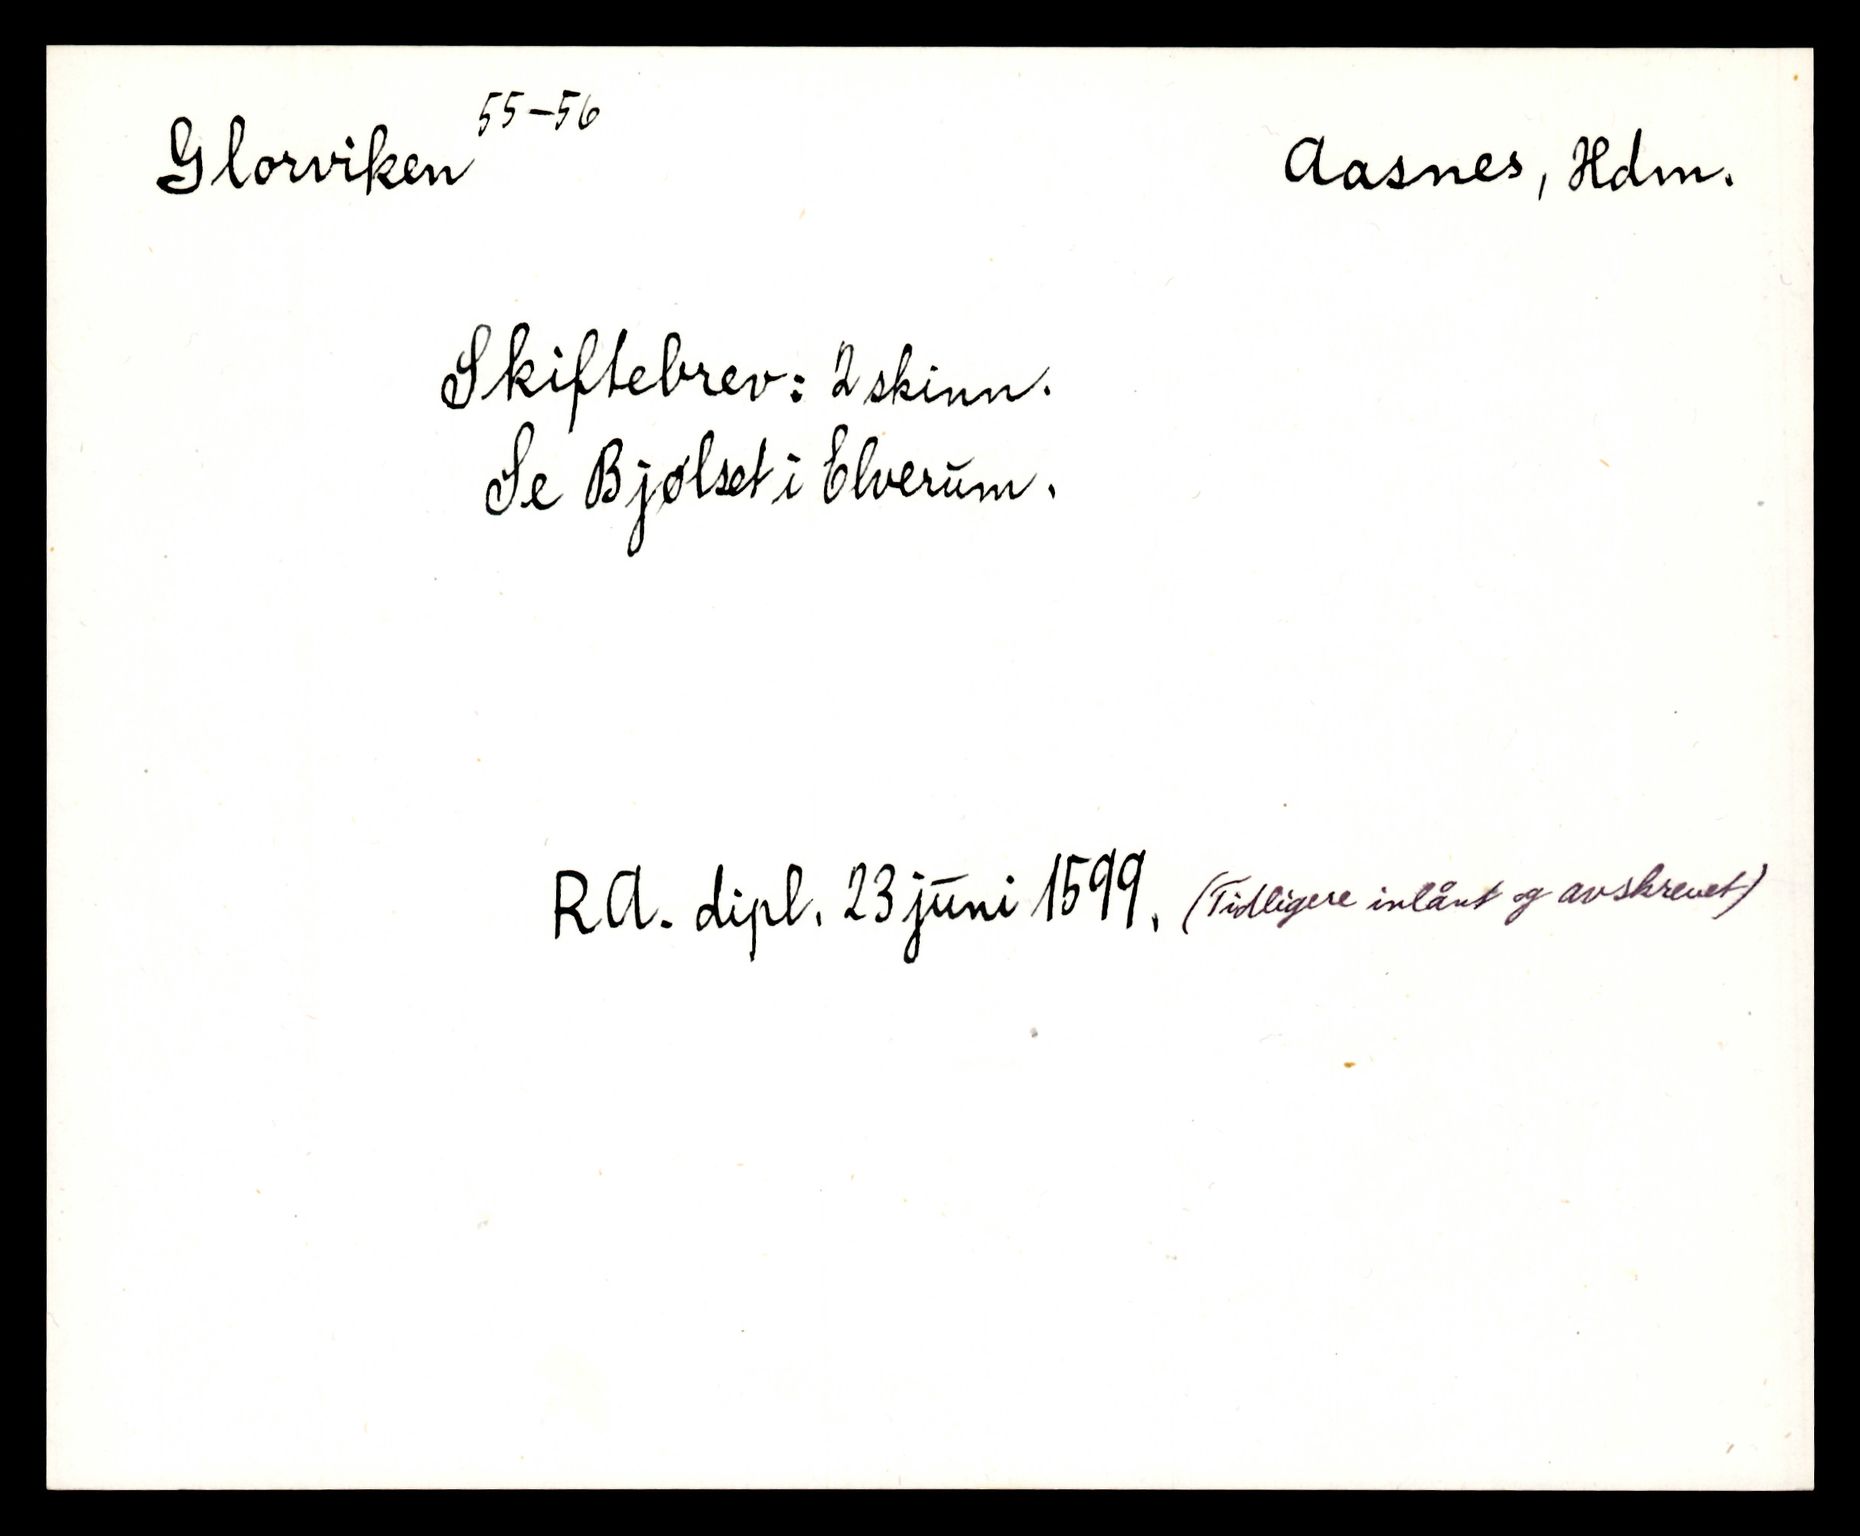 Glorviken 55-56 Aasnes, Hdm.
Skiftebrev: 2 skinn.
Se Bjølset i Elverum.
RA. dipl. 23 juni 1599. (Tidligere inlånt og avskrevet)